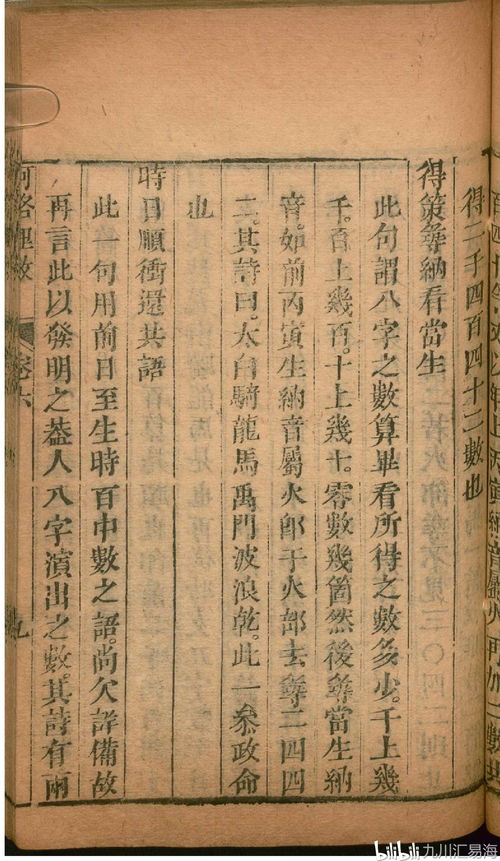 得二千四百四十二數也
得策尋納看當生
此句謂八字之數算畢看所得之數多少。千上幾
千。百上幾百。十上幾十。零數幾箇然後尋當生納
音。如前丙寅生納音屬火郎于火部去尋二四四
二。其詩曰。太白騎龍馬禹門波浪乾。此一叅政命
也
時日順衝還其語
此一句用前日至生時百中數之語尚欠詳備故
再言此以發明之葢人八字演出之數。其詩有兩
河洛理數
卷六
九
bilibili 九川汇易海